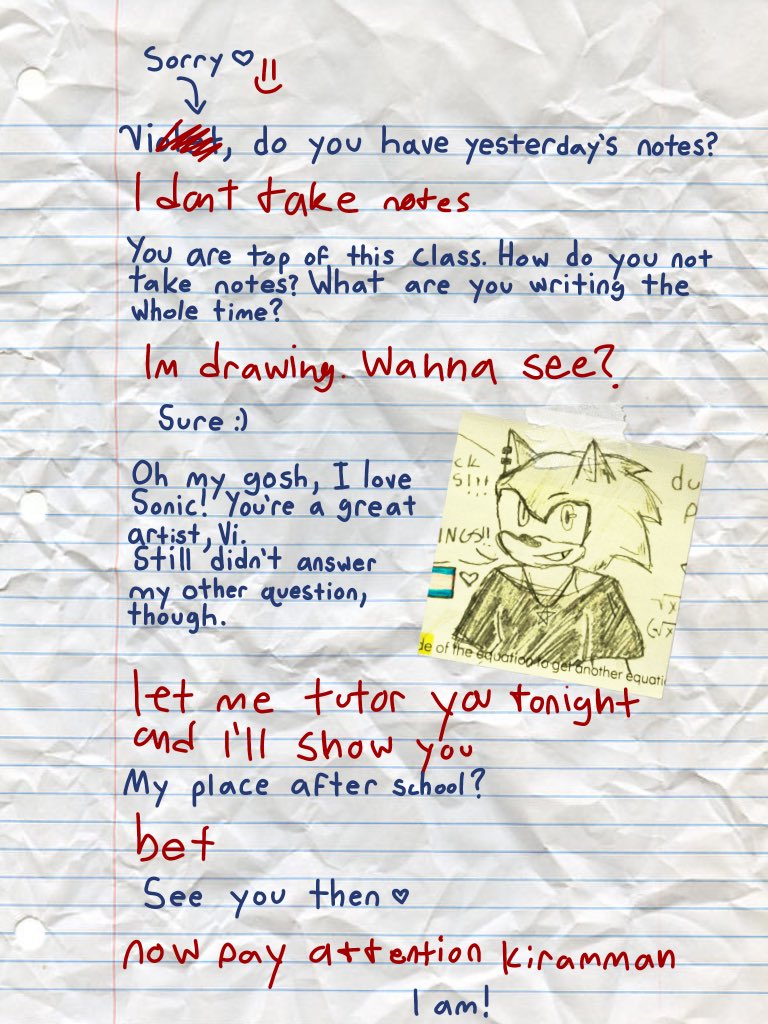 Sorry ♡
Vi, do you have yesterday's notes?
I dont take notes
You are top of this class. How do you not
take notes? What are you writing the
whole time?
Im drawing. Wanna see?
Sure :)
Oh my gosh, I love
Sonic! You're a great
artist, Vi.
Still didn't answer
my other question,
though.
CK
S!!!
INGS!!
du
de of the equation to get another equati
let me tutor you tonight
and I'll show you
My place after school?
bet
See you then ♡
now pay attention Kiramman
I am!